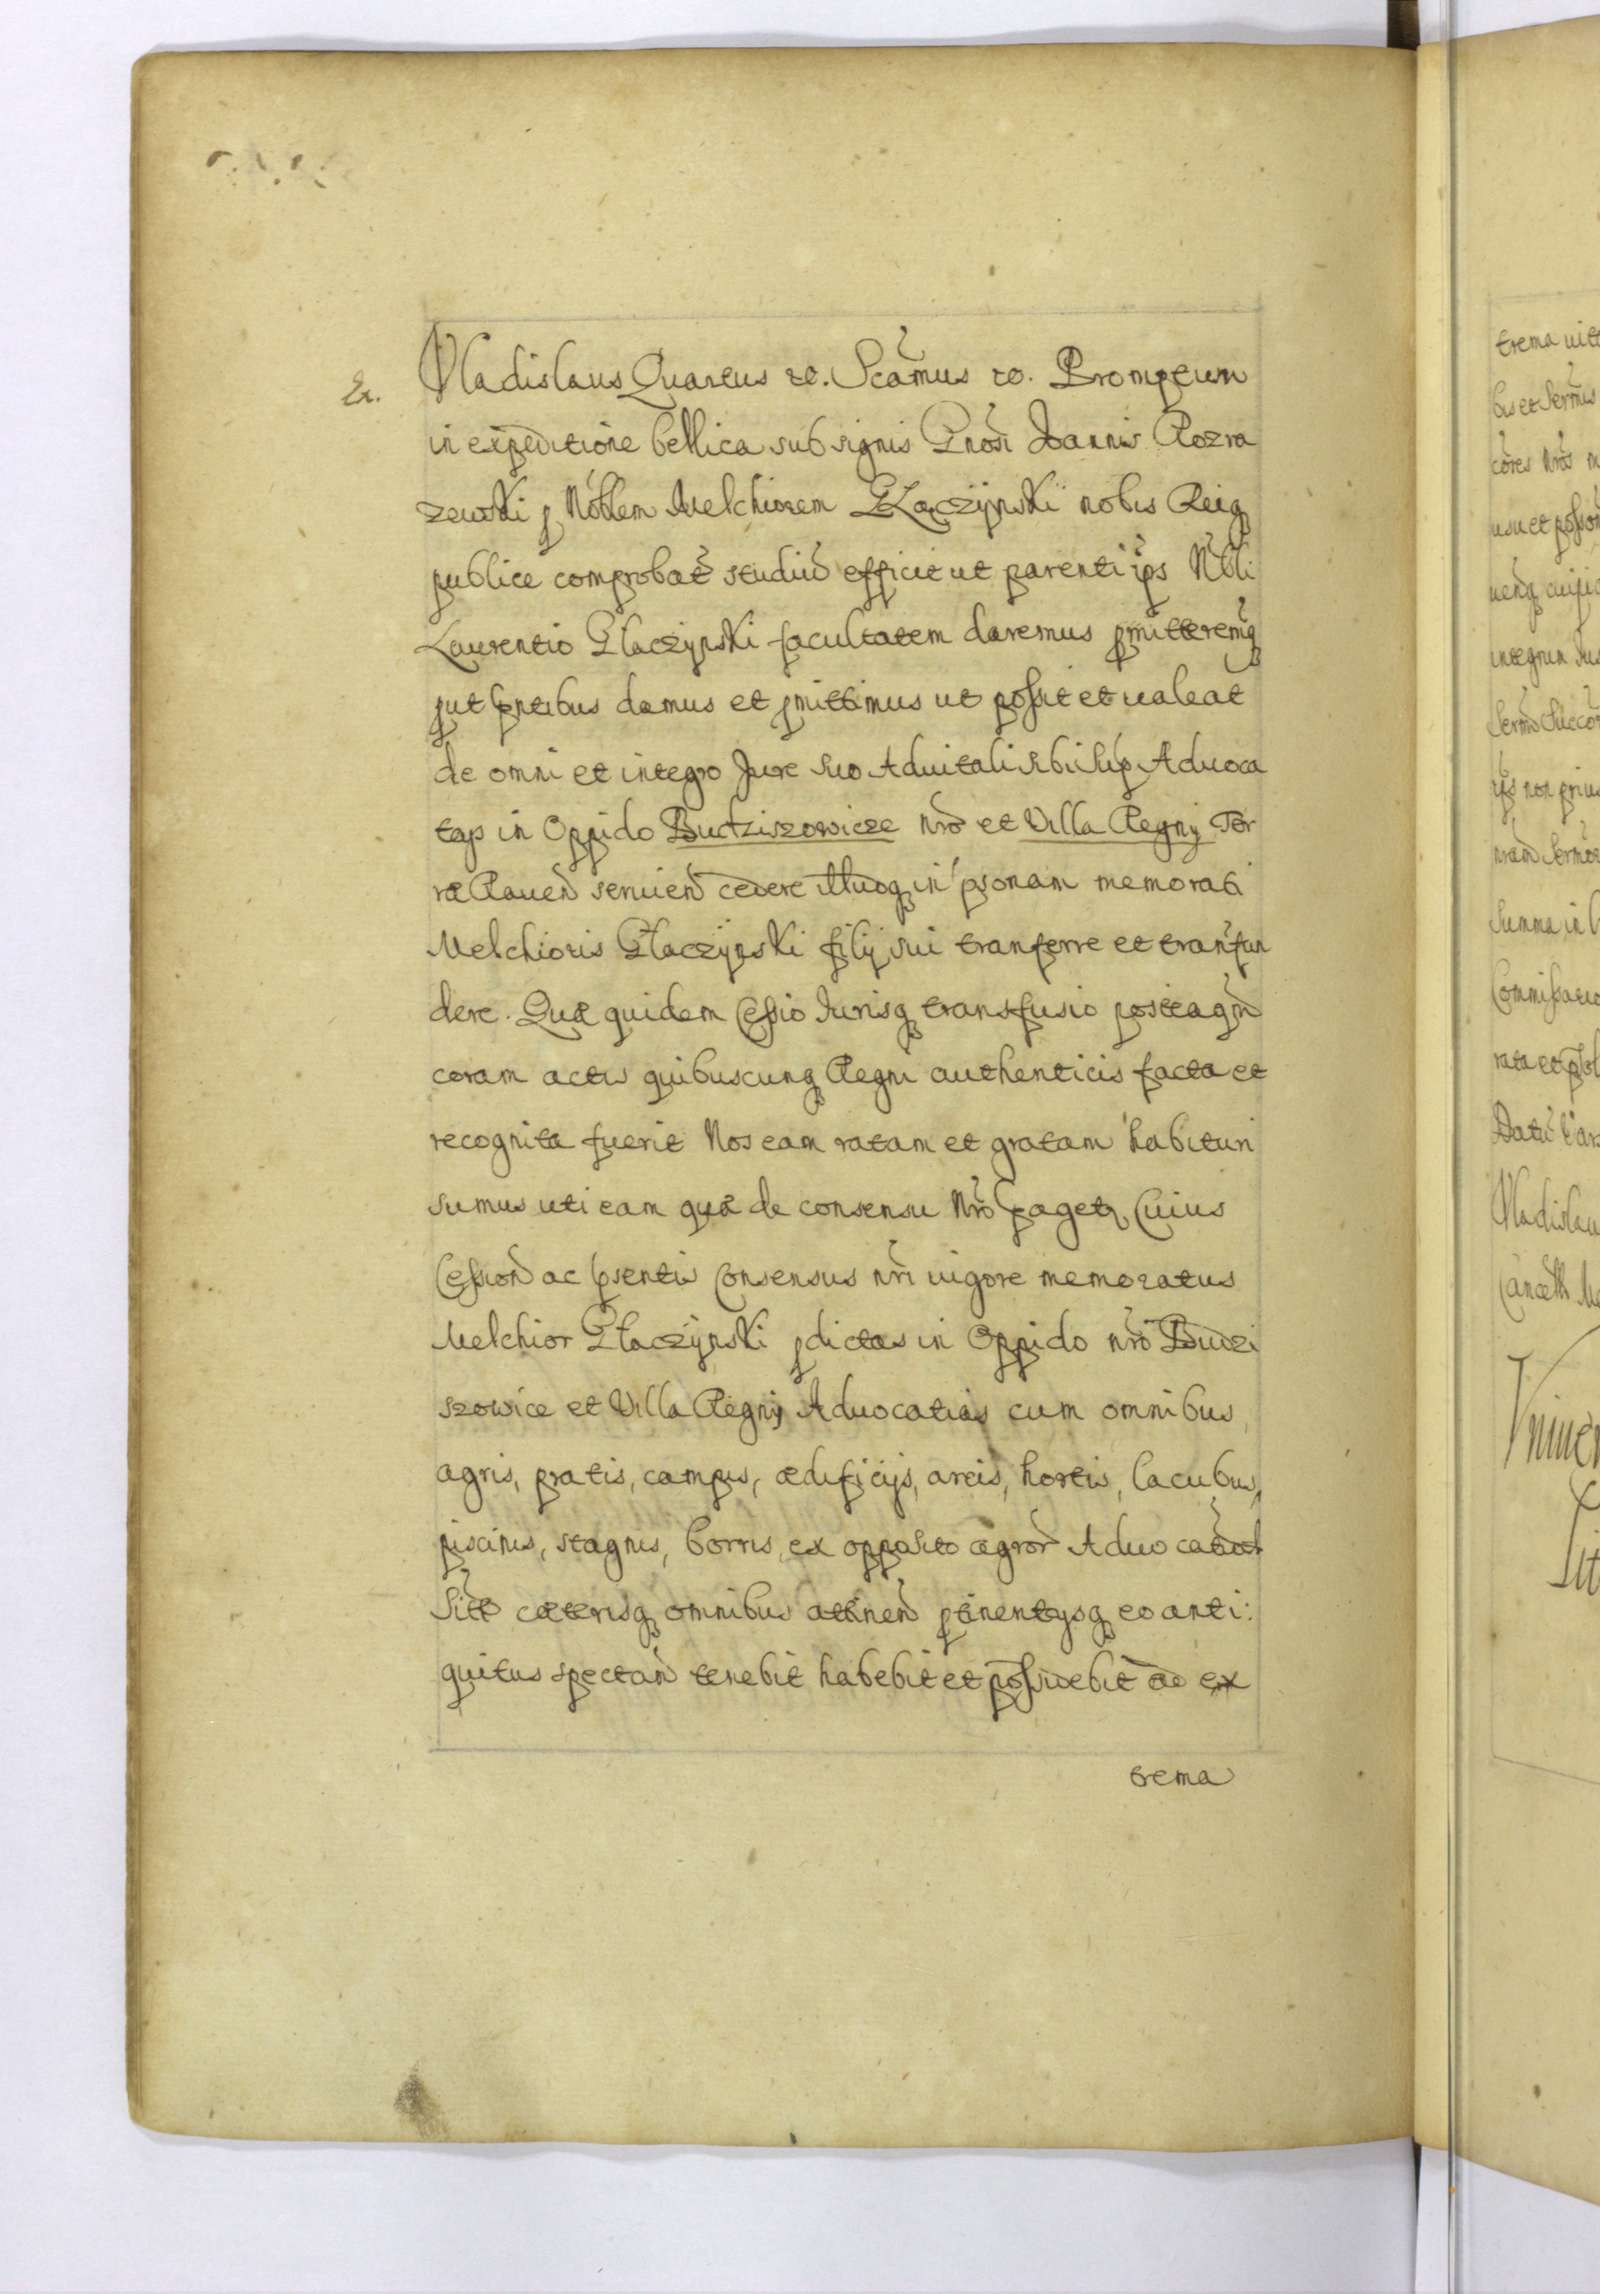 Ex.
Vladislaus Quartus etc. Scamus etc. Promptum
in expeditione bellica sub signis Gnosi Joannis Rozra
zewski p Nobilem Melchiorem Głączÿnski nobis Reiq
publice comprobat studiu efficit ut parenti ips Nbli
Laurentio Głaczynski facultatem daremus pmitteremq
put pntibus damus et pmittimus ut possit et ualeat
de omni et integro Jure suo Aduitali sibi sup Aduoca
tias in Oppido Budziszowicze nro et Villa Regny Ter
ræ Rauen seruien cedere illudq in psonam memorati
Melchioris Głaczÿnski filij sui tranferre et tranfun
dere. Quæ quidem Cessio Jurisq transfusio posteaqm
coram actis quibuscunq Regni authenticis facta et
recognita fuerit Nos eam ratam et gratam habituri
sumus uti eam quæ de consensu Nro pagetr Cuius
Cession ac psentis Consensus nri uigore memoratus
Melchior Głaczÿnski pdictas in Oppido nro Budzi
szowice et Villa Regny Aduocatias cum omnibus
agris, pratis, campis, ædificijs, areis, hortis, lacubus,
piscinis, stagnis, borris, ex opposito agror Aduo
sitt cæterisq omnibus attinen ptinentysq eo anti:
quitus spectan tenebit habebit et possidebit ad ex
trema
trema uit
bis et Sermis
cores Nros
usu et posson
uenq cuipi
integrum Jus
Sermo Succo
ips non prius
nram Sermor
Summa in
Commissario
rata et
Datu Vars
Vladislau
Cancell. M
Vniuer